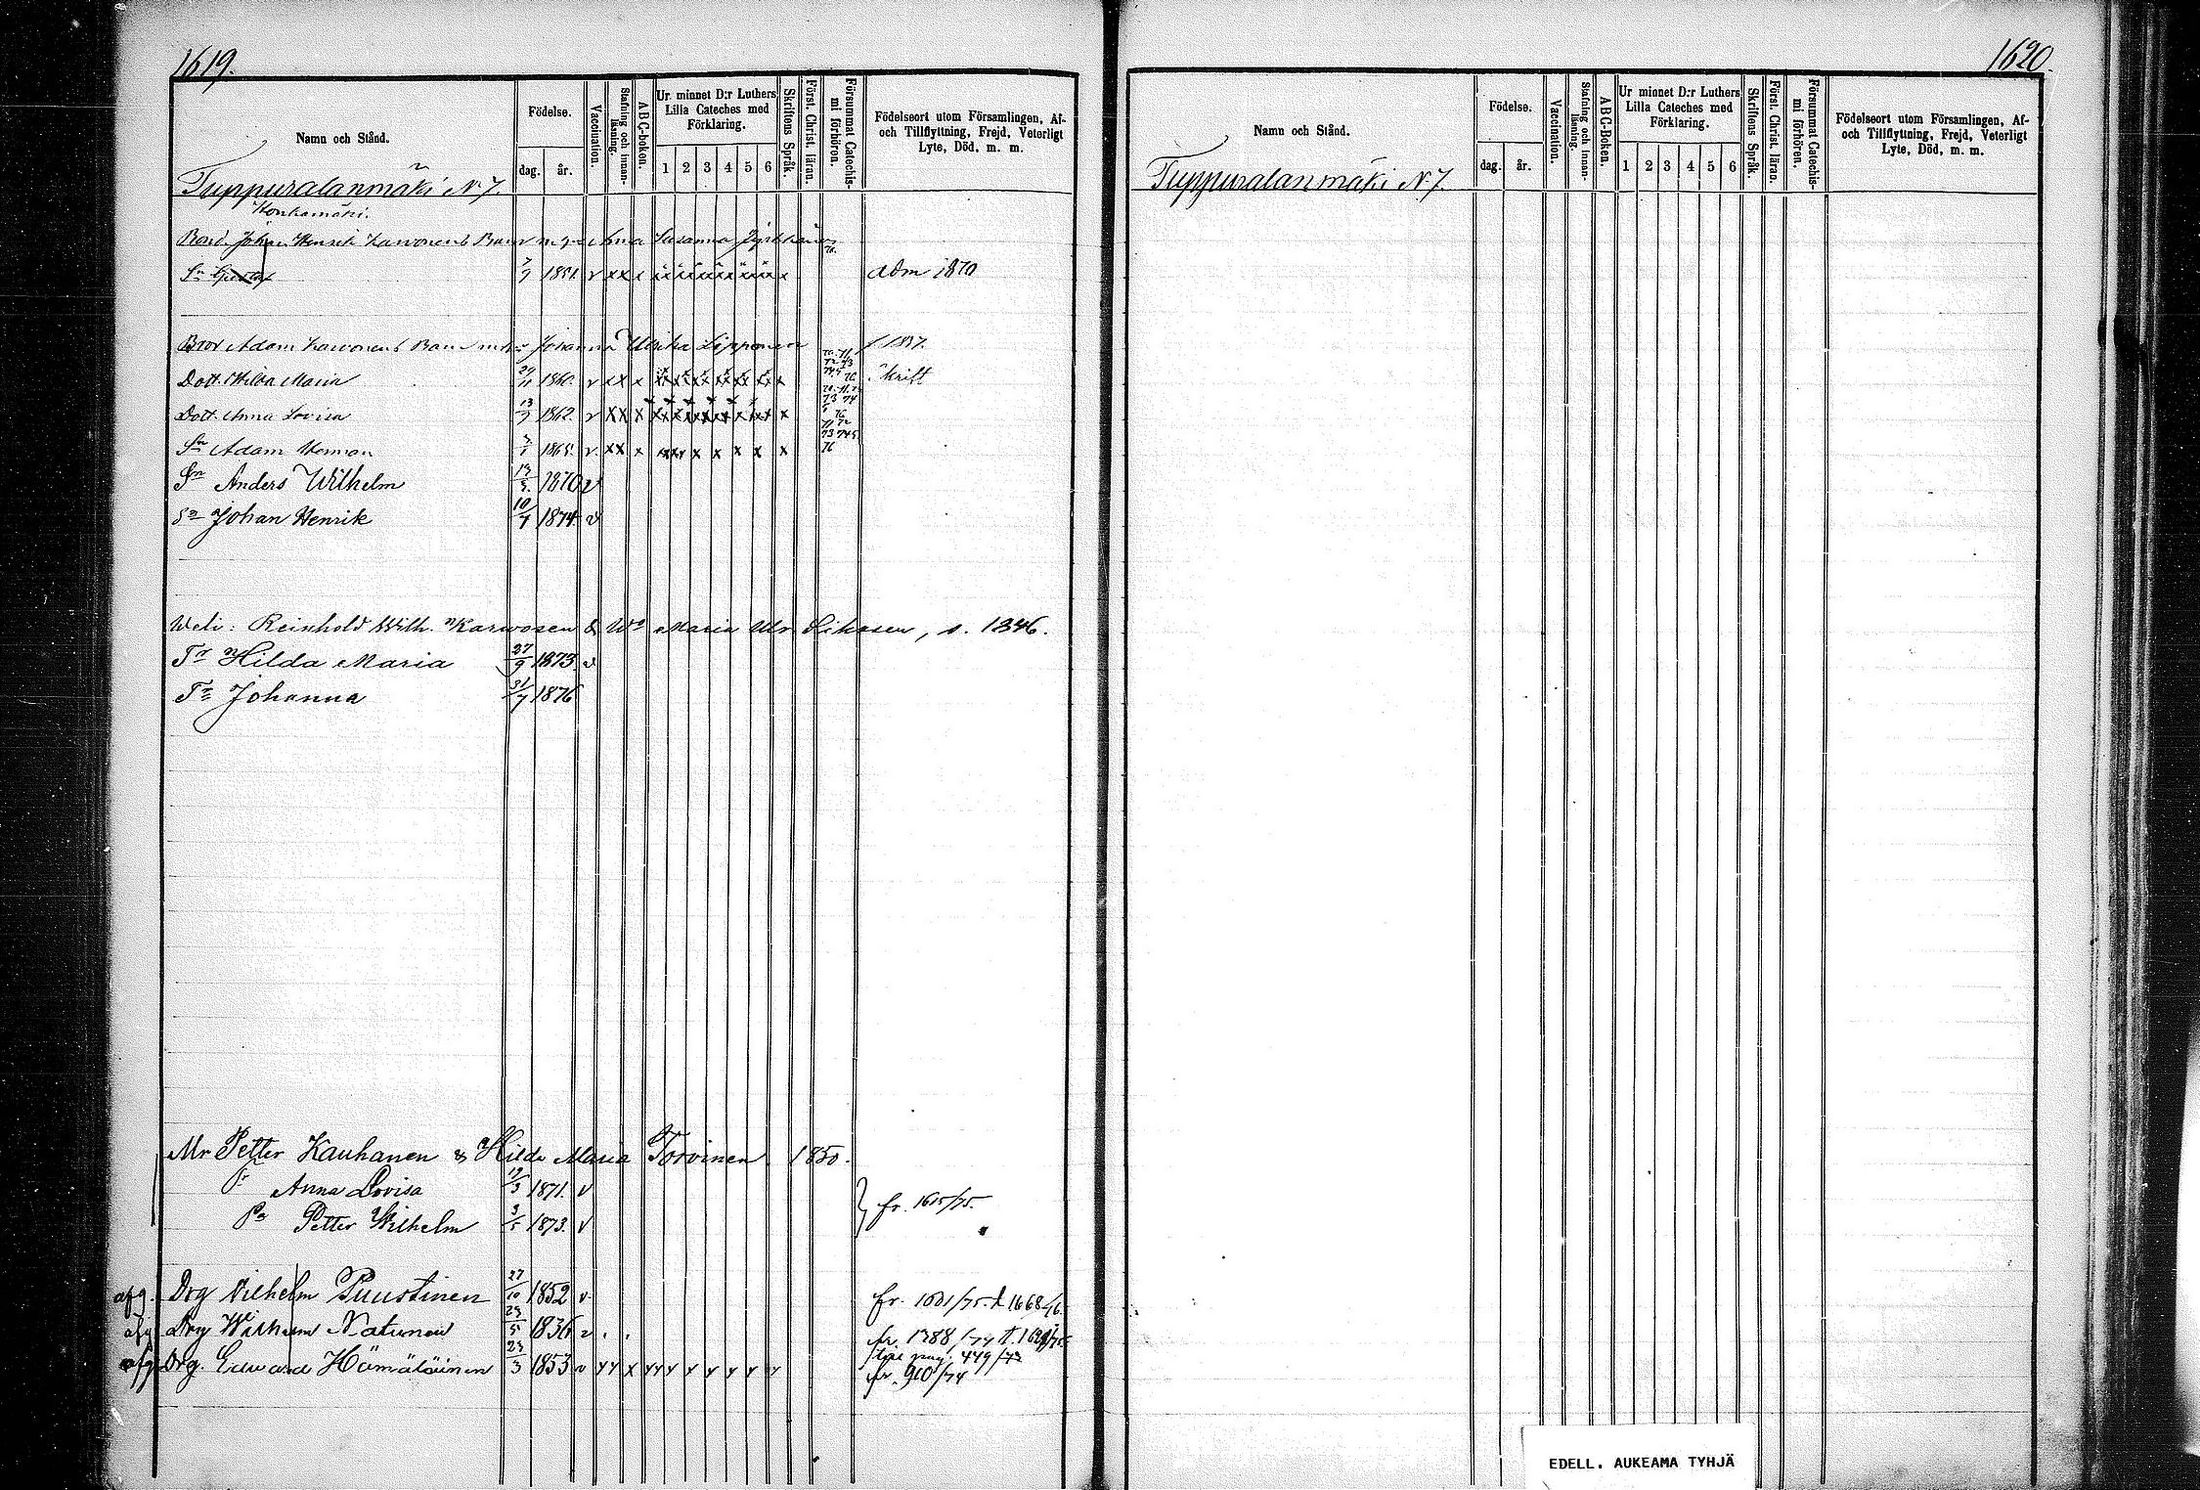 1619.
Namn och Stånd.
Födelse.
dag. år.
Vaccination.
Stafning och innan-läsning.
ABC-boken.
Ur minnet D:r Luthers Lilla Cateches med Förklaring.
1 2 3 4 5 6
Skriftens Språk.
Först. Christ. läran.
Försummat Catechis-mi förhören.
Födelseort utom Församlingen, Af- och Tillflyttning, Frejd, Veterligt Lyte, Död, m. m.
Tuppuralanmäki N. 7.
Konkamäki.
Johan Henrik Karvonens Barn m Anna Susanna
Sn Gustaf 1851 v x x x adm 1870
Bror Adam Karvonens Barn Johanna Ulrika Lipponen f 1837.
Dott. Hilda Maria 1860 v x x x
Dott. Anna Lovisa 13/7 1862. v x x x
Sn Adam Herman 1865. v x x x
Sn Anders Wilhelm 1870 v
Sn Johan Henrik 10/7 1874 v
Weli: Reinhold Wilh. Karvosen & Wo Maria Ulr Sikasen, s. 1846.
Tr Hilda Maria 27/9 1873 v
Tr Johanna 31/7 1876
Mr Petter Kauhanen & Hilda Maria Torvinen 1850.
Anna Lovisa 1871. v
Petter Wilhelm 3/5 1873. v
fr. 1615/75.
afg. Drg Vilhelm Puustinen 27/10 1852 v fr. 1001/75. t. 1668/76.
afg Drg Wilhelm Natunen 1836 v fr. 1388/74
pag. 449/73
afg Drg. Edward Hämäläinen 23/3 1853 v fr. 910/74
1620.
Namn och Stånd.
Födelse.
dag. år.
Vaccination.
Stafning och innan-läsning.
ABC-Boken.
Ur minnet D:r Luthers Lilla Cateches med Förklaring.
1 2 3 4 5 6
Skriftens Språk.
Först. Christ. läran.
Försummat Catechis-mi förhören.
Födelseort utom Församlingen, Af- och Tillflyttning, Frejd, Veterligt Lyte, Död, m. m.
Tuppuralanmäki N. 7.
EDELL. AUKEAMA TYHJÄ